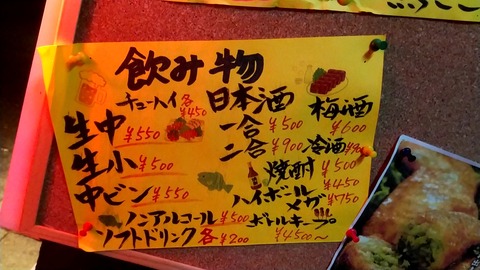 飲み物
チューハイ 各¥450
生中 ¥550
生小 ¥500
中ビン ¥550
ノンアルコール ¥500
ソフトドリンク 各¥200
日本酒
一合 ¥500
二合 ¥900
梅酒 ¥600
冷酒
焼酎 ¥500
ハイボール ¥450
メガ ¥750
ボトルキープ ¥4500〜